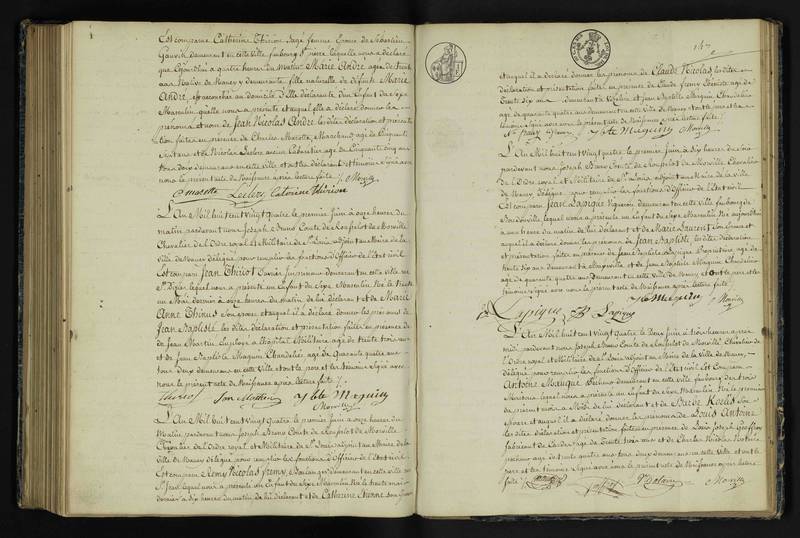 Est comparue Catherine Thirion sage femme Epouse de Sébastien
Gauvin demeurant en cette ville faubourg St pierre laquelle nous a déclaré
que cejourd'hui à quatre heures du matin Marie André agée de
native de Nancy y demeurante, fille naturelle de défunte Marie
André, est accouchée au domicile d'elle déclarante d'un Enfant du sexe
Masculin qu'elle nous a présenté et auquel elle a déclaré donner les
prénoms et nom de Jean Nicolas André les dites déclaration et présenta
tion faites en présence de Charles Marotte, Marchand, agé de Cinquante
sept ans et de Nicolas Leclerc ancien Cabaretier agé de Cinquante cinq ans
tous deux demeurant en cette ville et ont les déclarant et témoins signé avec
nous le présent acte de Naissance après lecture faite
Marotte Leclerc Catherine Thirion
L'An Mil huit cent vingt quatre le premier Juin à onze heures du
matin pardevant nous Joseph Bruno Comte de Morville
Chevalier de l'Ordre royal et Militaire de St Louis adjoint au Maire de la
Ville de Nancy délégué pour remplir les fonctions d'Officier de l'Etat civil
Est comparu Jean Thiriot demeurant en cette ville rue
St Dizier lequel nous a présenté un Enfant du sexe Masculin Né le trente
un Mai dernier à onze heures du matin de lui déclarant et de Marie
Anne Thirius son épouse et auquel il a déclaré donner les prénoms de
Jean Baptiste les dites déclaration et présentation faites en présence de
de Jean Martin à l'hôpital Militaire agé de trente trois ans
et de Jean Baptiste Maguin Chandelier agé de quarante quatre ans
tous deux demeurant en cette Ville et ont le père et les témoins signé avec
nous le présent acte de Naissance après lecture faite
Jean Martin J Bte Maguin
L'An Mil huit cent vingt quatre le premier Juin à onze heures du
Matin pardevant nous Joseph Bruno Comte de Morville
Chevalier de l'Ordre royal et Militaire de St Louis adjoint au Maire de la
Ville de Nancy délégué pour remplir les fonctions d'Officier de l'Etat civil
Est comparu Remy Nicolas Fremy, Boulanger demeurant en cette ville rue
St Jean lequel nous a présenté un Enfant du sexe Masculin Né le trente mai
dernier à dix heures du matin de lui déclarant et de Catherine Etienne son Epouse
147
et auquel il a déclaré donner les prénoms de Claude Nicolas, les dites
déclaration et présentation faites en présence de Claude Fremy agé de
trente six ans demeurant à et Jean Baptiste Maguin Chandelier
agé de quarante quatre ans demeurant en cette ville de Nancy et ont le père et les
témoins signé avec nous le présent acte de Naissance après lecture faite
J Bte Maguin
L'An Mil huit cent vingt quatre le premier Juin à dix heures du
pardevant nous Joseph Bruno Comte de Morville Chevalier
de l'Ordre royal et Militaire de St Louis adjoint au Maire de la ville
de Nancy délégué pour remplir les fonctions d'Officier de l'Etat civil
Est comparu Jean Lapique Vigneron demeurant en cette Ville faubourg de
lequel nous a présenté un Enfant du sexe Masculin Né aujourd'hui
à une heure du matin de lui déclarant et de Marie Laurent son Epouse et
auquel il a déclaré donner les prénoms de Jean Baptiste les dites déclaration
et présentation faites en présence de Jean Baptiste Lapique agé de
trente six ans demeurant à et de Jean Baptiste Maguin Chandelier
agé de quarante quatre ans demeurant en cette ville de Nancy et ont le père et les
témoins signé avec nous le présent acte de Naissance après lecture faite
J Bte Maguin
Lapique J B Lapique
L'An Mil huit cent vingt quatre le Deux Juin à trois heures après
midi pardevant nous Joseph Bruno Comte de Morville Chevalier de
l'Ordre royal et Militaire de St Louis adjoint au Maire de la Ville de Nancy
délégué pour remplir les fonctions d'Officier de l'Etat civil Est Comparu
Antoine demeurant en cette ville faubourg des trois
Maisons lequel nous a présenté un Enfant du sexe Masculin Né le premier
du présent mois à de lui déclarant et de Barbe son
Epouse et auquel il a déclaré donner les prénoms de Louis Antoine
les dites déclaration et présentation faites en présence de Louis Joseph Geoffroy
fabricant de Cardes agé de trente trois ans et de Charles Nicolas
agé de trente quatre ans tous deux demeurant en cette ville et ont le
père et les témoins signé avec nous le présent acte de Naissance après lecture
faite